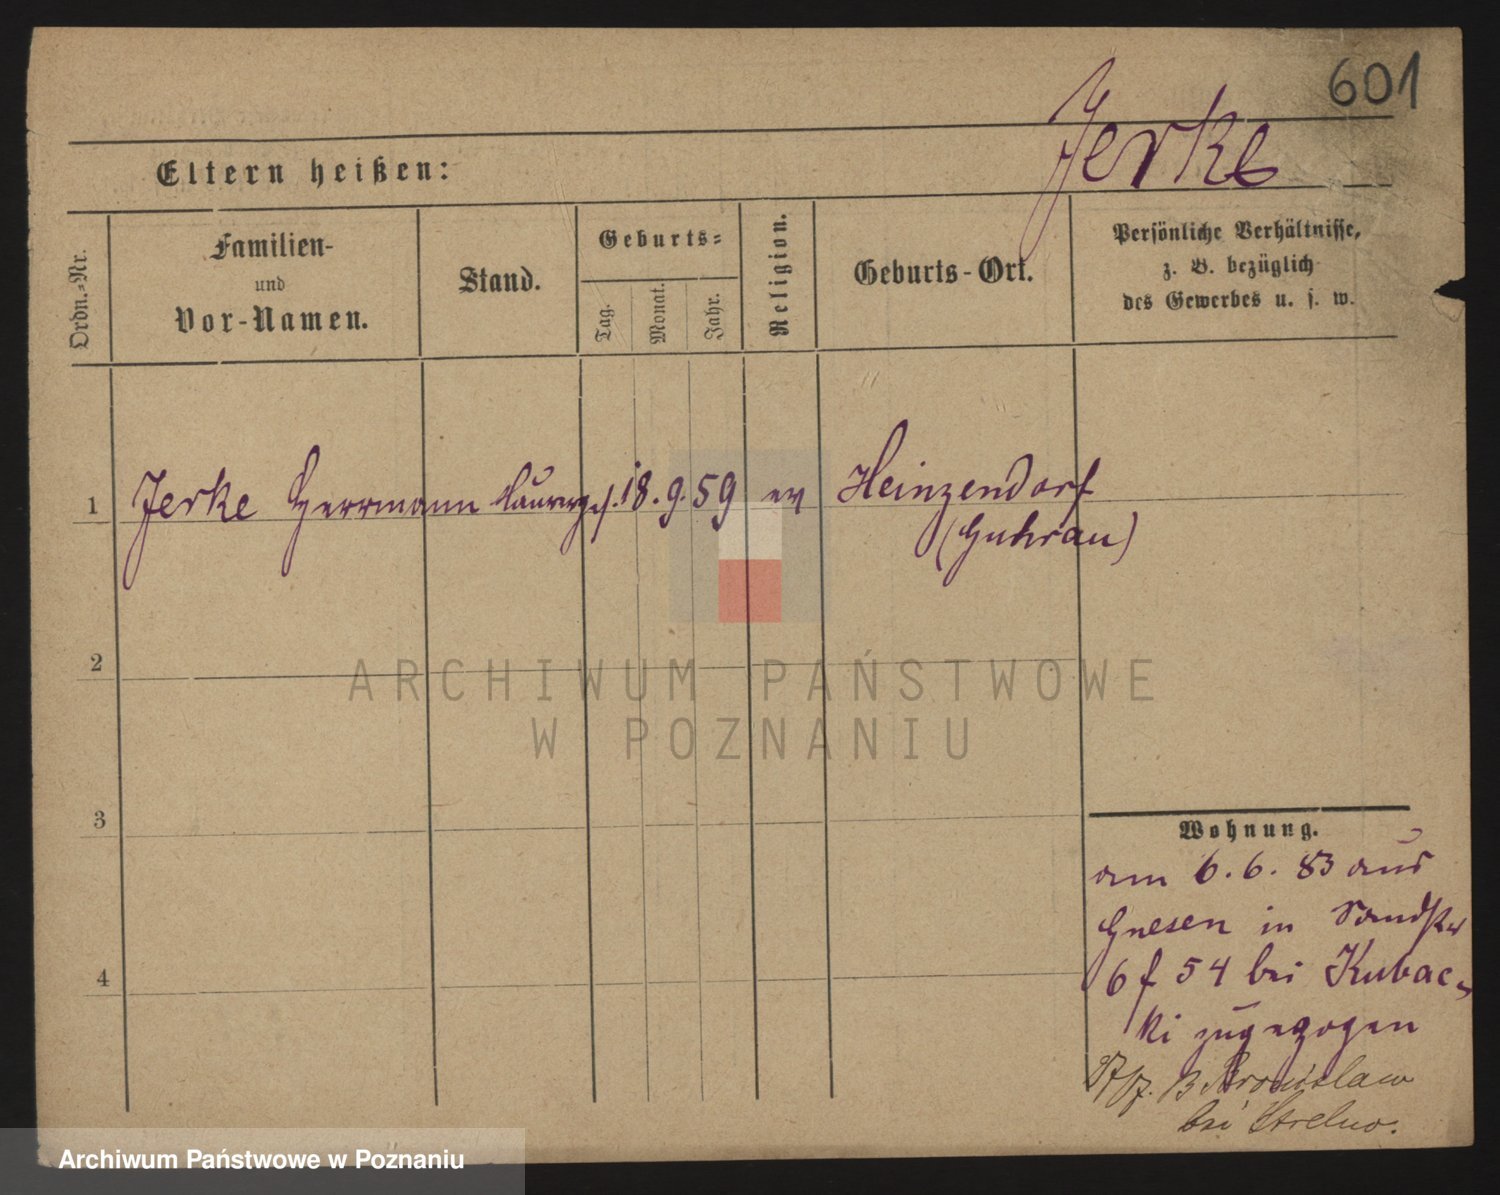 601
Jerke
Eltern heißen:
Ordn.-Nr.
Familien-
und
Vor-Namen.
Stand.
Geburts-
Tag.
Monat.
Jahr.
Religion.
Geburts-Ort.
Persönliche Verhältnisse,
z. B. bezüglich
des Gewerbes u. s. w.
1
Jerke Herrmann
18. 9. 59
ev
Heinzendorf
(Guhrau)
2
3
4
Wohnung.
am 6. 6. 83 aus
Gnesen in Sandstr
6 f 54 bei Kubac-
ki zugezogen
Bronislaw
bei Strelno.
ARCHIWUM PAŃSTWOWE
W POZNANIU
Archiwum Państwowe w Poznaniu